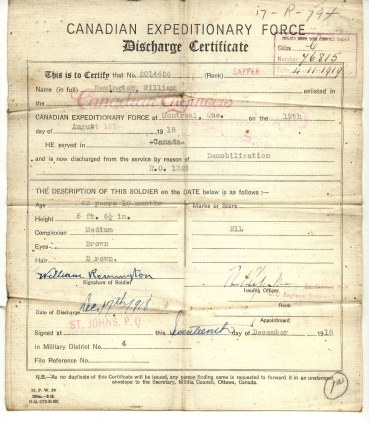 17-R-794
CANADIAN EXPEDITIONARY FORCE
Discharge Certificate
Class G
Number 76815
Date 4-11-1919
This is to Certify that No. 2014426 (Rank) SAPPER
Name (in full) Remington, William enlisted in
the Canadian Engineers
CANADIAN EXPEDITIONARY FORCE at Montreal, Que. on the 19th
day of August 1918
HE served in -Canada-
and is now discharged from the service by reason of Demobilization
R.O. 1328
THE DESCRIPTION OF THIS SOLDIER on the DATE below is as follows:-
Age 43 years 10 months Marks or Scars
Height 5 ft. 6½ in.
Complexion Medium NIL
Eyes Brown
Hair Brown.
William Remington
Signature of Soldier
Issuing Officer
Rank
Date of Discharge Dec. 17th/1918
ST. JOHNS, P.Q.
Appointment
Signed at this Seventeenth day of December 1918
in Military District No. 4
File Reference No.
N.B.—As no duplicate of this Certificate will be issued, any person finding same is requested to forward it in an unstamped
envelope to the Secretary, Militia Council, Ottawa, Canada.
M. F. W. 39